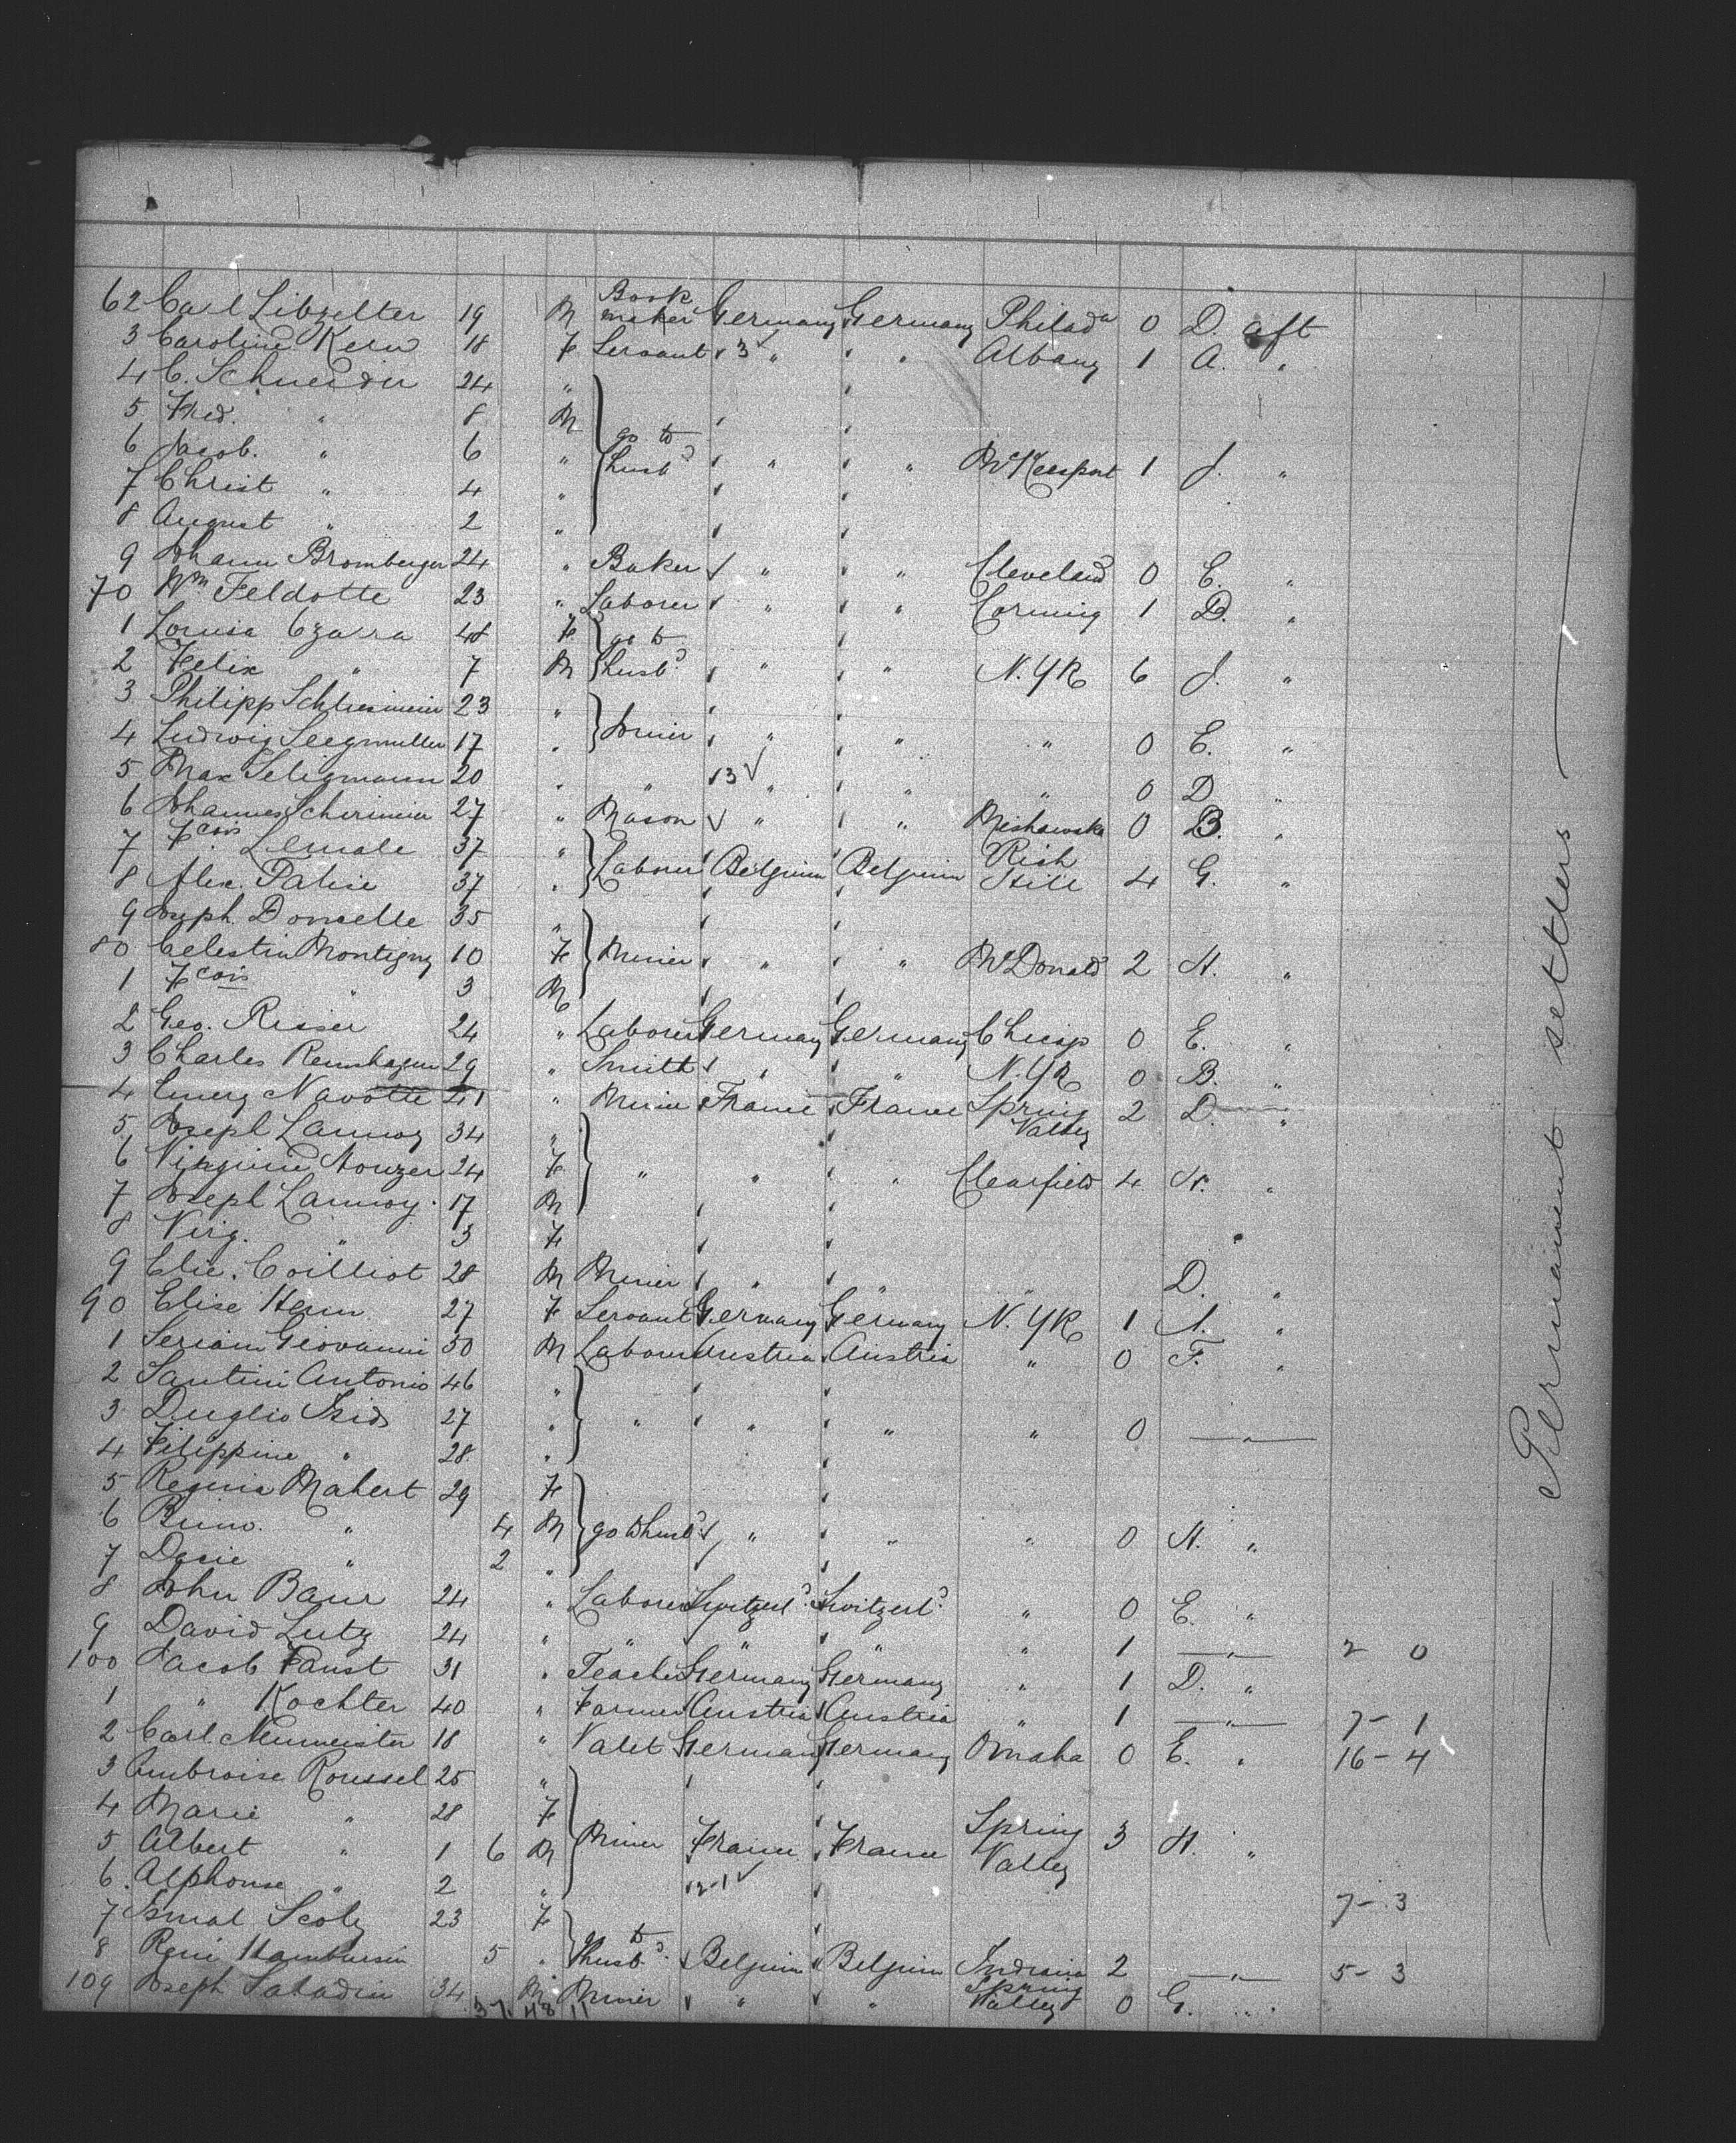 62 Carl Libzelter 19 M Book maker Germany Germany Philada 0 D. aft
3 Caroline Kern 18 F Servant " 3 " " Albany 1 A. "
4 C. Schneider 24 "
5 Fred. " 8 M
6 Jacob. " 6 " go to husbd " " McKeesport 1 J. "
7 Christ " 4 "
8 August " 2 "
9 Johann Bromberger 24 " Baker " " Cleveland 0 E. "
70 Wm Feldotte 23 " Laborer " " Corning 1 D. "
1 Lousia Czarra 48 F go to
2 Felix " 7 M husbd " " N. YK 6 J. "
3 Philipp 23 "
4 Ludwig Seegmuller 17 " Joiner " " " 0 E. "
5 Max Seligmann 20 " " 13 " " " 0 D "
6 Johannes 27 " Mason " " Mishawaka 0 B. "
7 Fcois Lemale 37 " Laborer Belgium Belgium Rich Hill 4 G. "
8 Alex. Palise 37 "
9 Joseph Doncelle 35 "
80 Celestin Montigny 10 F Miner " " McDonald 2 H. "
1 Fcois " 3 M
2 Geo. Risser 24 " Laborer Germany Germany Chicago 0 E. "
3 Charles 29 " Smith " " N. YK 0 B. "
4 Emery Navotte 21 " Miner France France Spring Valley 2 D. "
5 Joseph Lannoy 34 "
6 Virginie 24 F " " " Clearfield 4 H. "
7 Joseph Lannoy 17 M
8 Virg. " 3 F
9 Elie. Coilliot 28 M Miner " " " D. "
90 Elise Henn 27 F Servant Germany Germany N. YK 1 A. "
1 Seriani Giovanni 50 M Laborer Austria Austria " 0 F. "
2 Santini Antonio 46 "
3 Duglio Isid 27 " " " " " 0 — " —
4 Filippine " 28 "
5 Regina Mahert 29 F
6 Bruno. " 4 M go to husbd " " " 0 H. "
7 " 2 "
8 John Baur 24 " Laborer Switzerld Switzerld " 0 E. "
9 David Lutz 24 " " " " 1 — " — 2 0
100 Jacob Faust 31 " Teacher Germany Germany " 1 D. "
1 " Kochter 40 " Farmer Austria Austria " 1 — " — 7-1
2 Carl Neumeister 18 " Valet Germany Germany Omaha 0 E. " 16-4
3 Ambroise Roussel 25 "
4 Marie " 28 F
5 Albert " 1 6 M Miner France France Spring Valley 3 H. "
6. Alphonse " 2 " 12-1
7-3
7 Scoly 23 F go to
8 5 " husbd. Belgium Belgium Indiana 2 — " — 5-3
109 Joseph Saladin 34 M Miner " " Spring Valley 0 G. "
37. 48 11
Permanent settlers